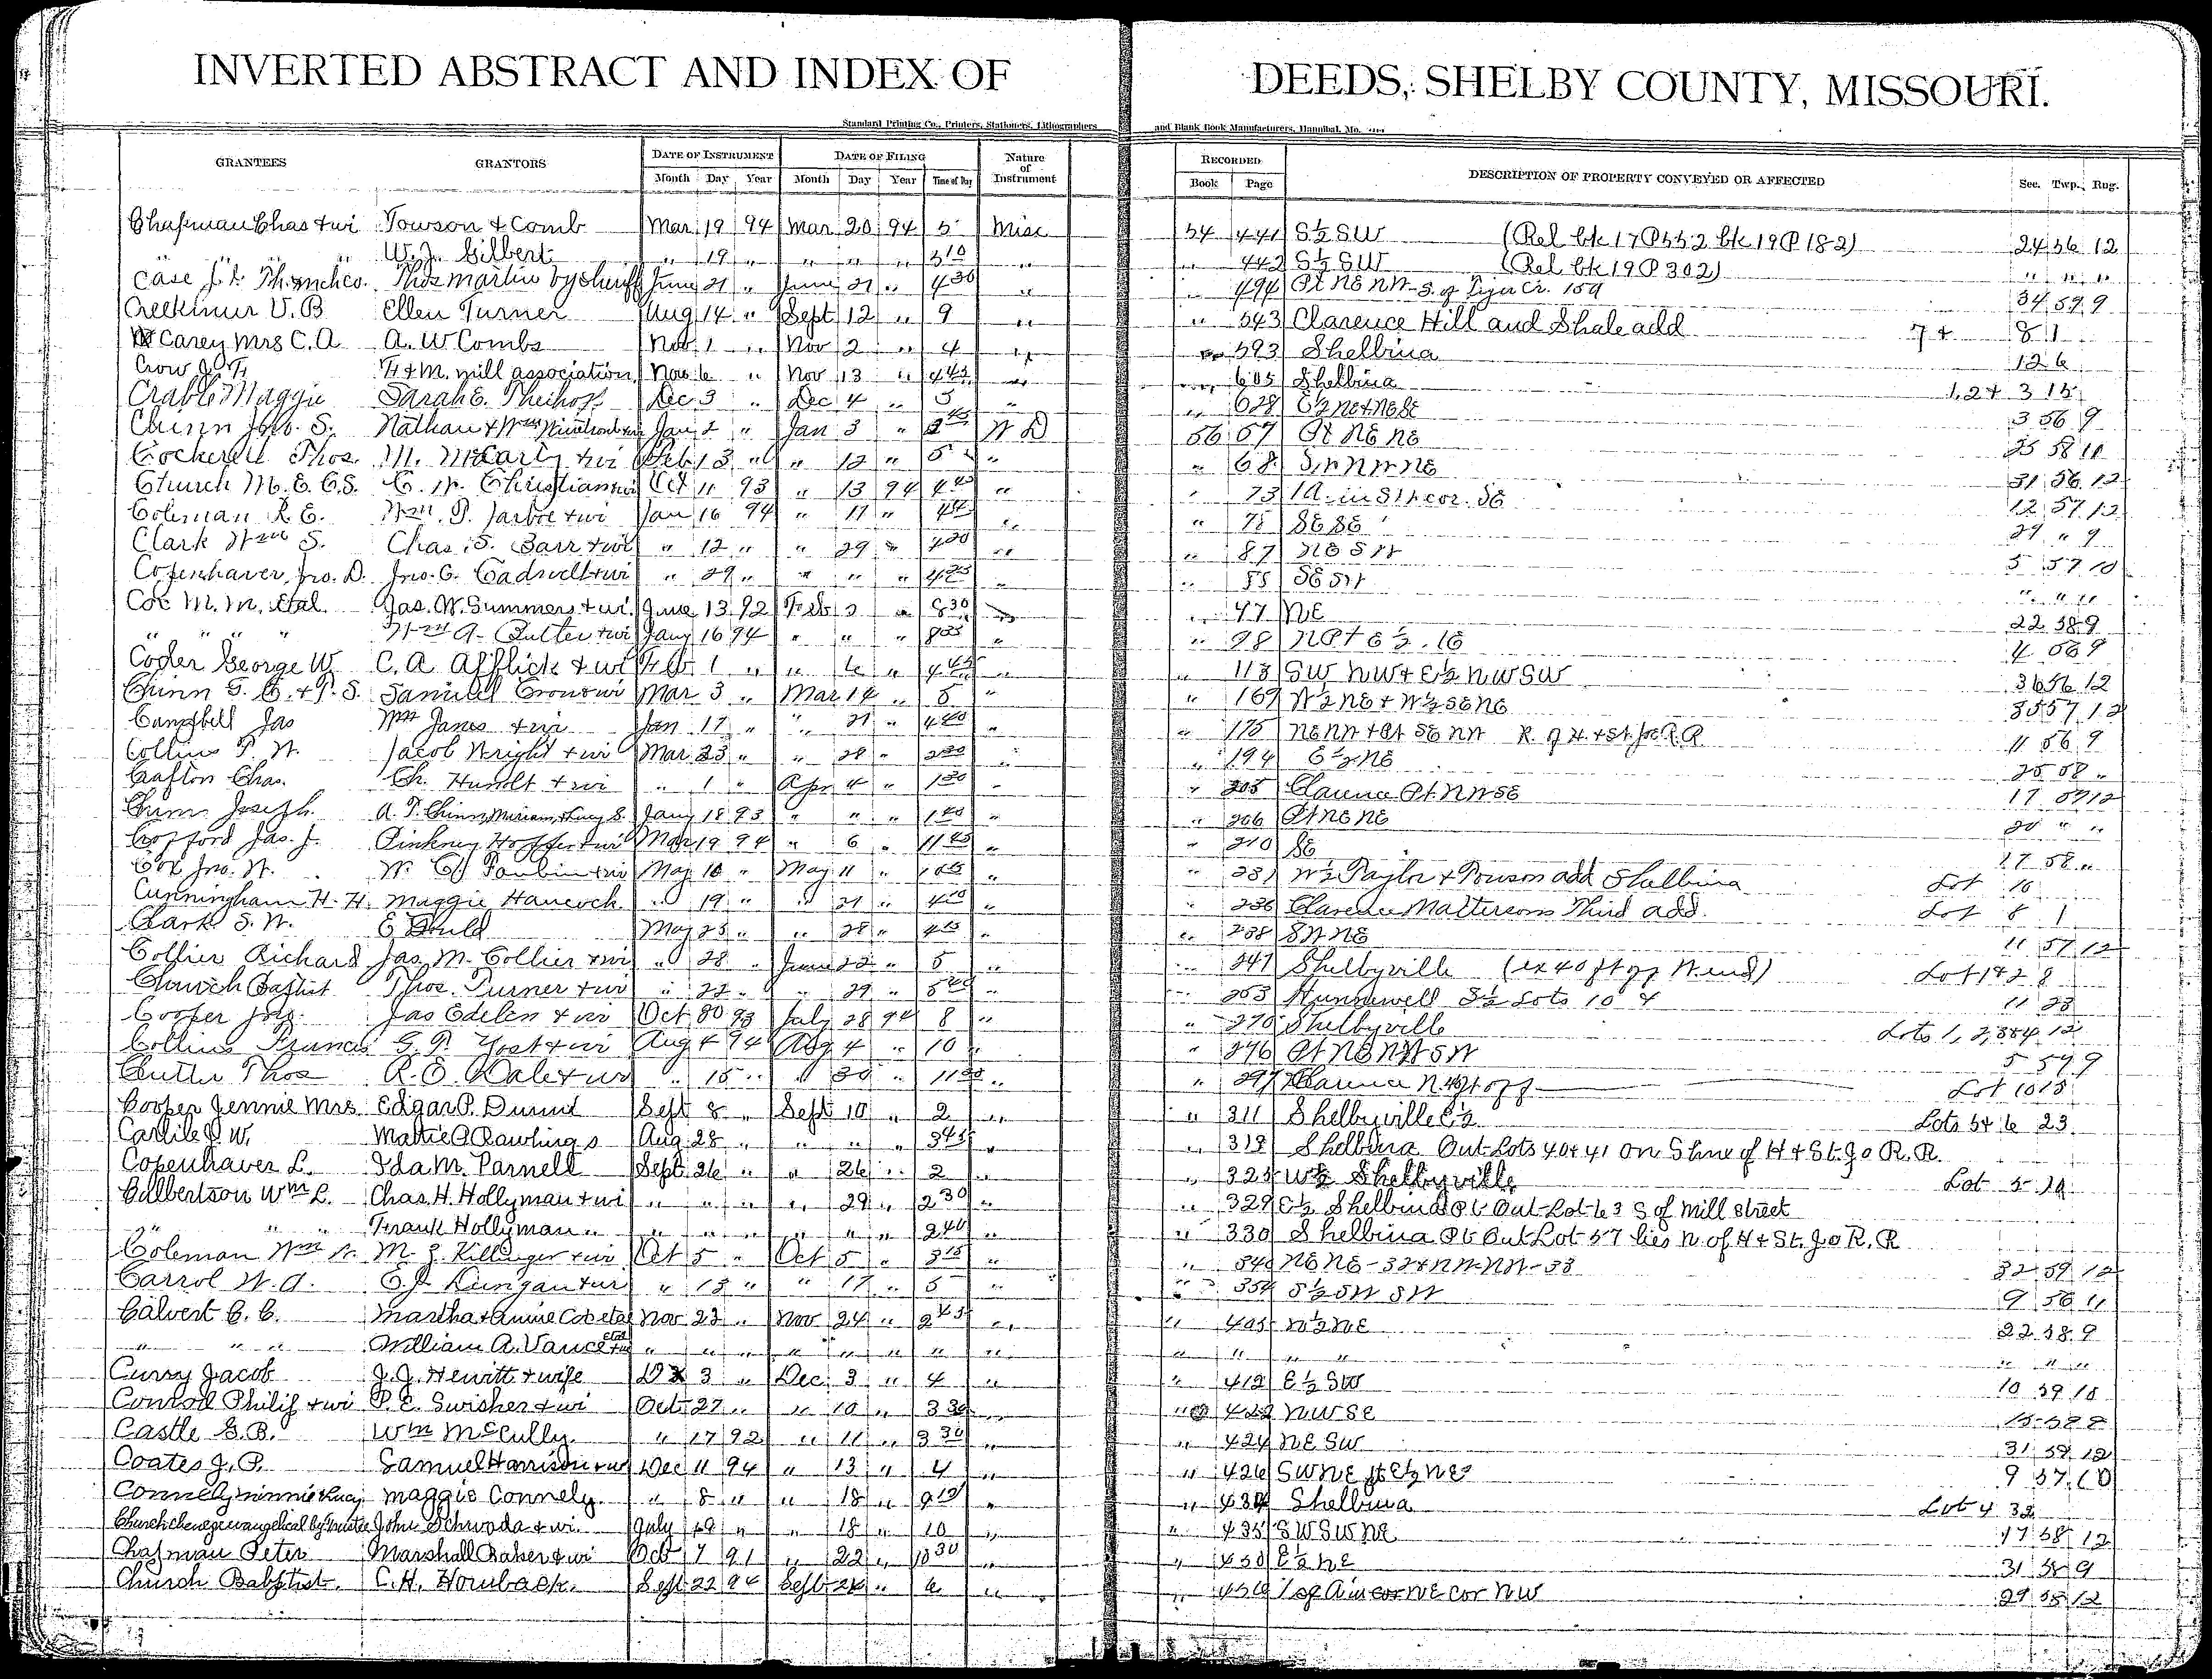 INVERTED ABSTRACT AND INDEX OF DEEDS, SHELBY COUNTY, MISSOURI.
Standard Printing Co., Printers, Stationers, Lithographers and Blank Book Manufacturers, Hannibal, Mo.
GRANTEES GRANTORS DATE OF INSTRUMENT DATE OF FILING Nature of Instrument RECORDED DESCRIPTION OF PROPERTY CONVEYED OR AFFECTED Sec. Twp. Rng.
Month Day Year Month Day Year Time of Day Book Page
Chapman Chas + wi Towson & Comb Mar 19 94 Mar 20 94 5 Misc 54 441 S½ SW (Rel bk 17 P 552 bk 19 P 182) 24 56 12
" " " W. J. Gilbert " 19 " " " " 510 " " 442 S½ SW (Rel bk 19 P 302) " " "
Case J. I. Th. Mch co. Thos Martin by Sheriff June 21 " June 21 " 430 " " 494 Pt NE NW S. of Tiger Cr. 15a 34 57 9
Creekmur V. B Ellen Turner Aug 14 " Sept 12 " 9 " " 543 Clarence Hill and Shale add 7 + 8 1
Carey Mrs C. A A. W Combs Nov 1 " Nov 2 " 4 " " 593 Shelbina 12 6
Crow J. T. F. & M. mill association Nov 6 " Nov 13 " 445 " " 605 Shelbina 1, 2 + 3 15
Crable Maggie Sarah E. Dec 3 " Dec 4 " 5 " " 628 E½ NE + NE SE 3 56 9
Chinn Jos. S. Nathan & Wm Jan 2 " Jan 3 " 245 W D 56 57 Pt NE NE 25 58 11
Cockerell Thos. M. McCarty + wi Feb 13 " " 12 " 5 " " 68 SW NW NE 31 56 12
Church M. E. C. S. C. W. Christian + wi Oct 11 93 " 13 94 445 " 73 1 A. in SW cor. SE 12 57 12
Coleman R E. Wm. P. Jarboe + wi Jan 16 94 " 17 " " " 75 SE SE 21 " 9
Clark Wm S. Chas. S. Barr + wi " 12 " " 29 " 420 " " 87 NE SW 5 57 10
Copenhaver, Jno. D. Jno. C. Cadwell + wi " 29 " " " " 425 " " 88 SE SW " " "
Coe M. M. et al. Jas. W. Summers + wi June 13 92 Feb 3 " 830 " " 97 NE 22 58 9
" " " " Wm A. Butler + wi Jany 16 94 " " " 835 " " 98 4 56 9
Coder George W. C. A. Afflick + wi Feb 1 " " 6 " 445 " " 113 SW NW + E½ NW SW 36 56 12
Chinn G. C. + P. S. Samuel Mar 3 " Mar 14 " 5 " " 169 W½ NE + W½ SE NE 35 57 12
Campbell Jas Wm Janes + wi Jan 17 " " 21 " 440 " " 175 NE NW + Pt SE NW R. of H. + St. Joe R. R 11 56 9
Collins P. W. Jacob Wright + wi Mar 23 " " 28 " 230 " " 194 E½ NE 25 58 "
Cafton Chas. Ch. Hundt + wi " 1 " Apr 4 " 130 " " 205 Clarence Pt NW SE 17 57 12
Chinn Joseph A. P. Chinn, Miriam, + Lucy S. Jany 18 93 " " " 140 " " 206 Pt NE NE 20 " "
Crofford Jas. J. Pinkney + wi Mar 19 94 " 6 " 1145 " " 210 SE 17 58 "
Cox Jno. W. W. + wi May 10 " May 11 " " " 231 W½ Taylor & Towson add Shelbina Lot 10
Cunningham H. H. Maggie Hancock " 19 " " 21 " 420 " " 236 Clarence Mattersons Third add. Lot 8 1
Clark S. W. E Gould May 25 " " 28 " 415 " " 238 SW NE 11 57 12
Collier Richard Jas. M. Collier + wi " 28 " June 22 " 5 " " 241 Shelbyville (ex 40 ft off W. end) Lot 1 & 2 8
Church Baptist Thos. Turner + wi " 22 " " 29 " 540 " " 253 Hunnewell S½ Lots 10 & 11 23
Cooper Jno. Jas Edelen + wi Oct 30 93 July 28 94 8 " " 270 Shelbyville Lots 1, 2, 3 & 4 12
Collins Francis G. P. Yost + wi Aug 4 94 Aug 4 " 10 " " 276 Pt NE NW SW 5 57 9
Cutler Thos R. E. Dale + wi " 15 " " 30 " 1120 " " 297 Clarence Lot 10 15
Cooper Jennie Mrs Edgar P. Dunn Sept 8 " Sept 10 " 2 " " 311 Shelbyville E½ Lots 5 + 6 23
Carlile J. W. Mattie A Rawlings Aug 28 " " " " 345 " " 319 Shelbina Out-Lots 40 + 41 on S line of H + St. Jo R. R.
Copenhaver L. Ida M. Parnell Sept 26 " " 26 " 2 " " 325 W½ Shelbyville Lot 5 10
Culbertson Wm L. Chas. H. Hollyman + wi " " " " 29 " 230 " " 329 E½ Shelbina Pt Out-Lot 63 S of Mill Street
" " " Frank Hollyman " " " " " " " 240 " " 330 Shelbina Pt Out Lot 57 lies N. of H + St. Jo R. R
Coleman Wm M. S. Killinger + wi Oct 5 " Oct 5 " 315 " " 340 NE NE - 32 + NW NW - 33 32 59 12
Carrol W. A. C. J. Dunigan + wi " 13 " " 17 " 5 " " 354 S½ SW SW 9 56 11
Calvert C. C. Martha & Annie Coe etal Nov 23 " Nov 24 " 245 " " 405 N½ NE 22 58 9
" " " William A. Vance etal " " " " " " " " " " " " " " "
Curry Jacob J. J. Hewitt + wife 3 " Dec. 3 " 4 " " 412 E½ SW 10 59 10
Conrad Philip + wi P. E. Swisher + wi Oct 27 " " 10 " 330 " " 422 NW SE 15 58 8
Castle G. B. Wm McCully " 17 92 " 11 " 330 " " 424 NE SW 31 59 12
Coates J. P. Samuel Harrison + wi Dec 11 94 " 13 " 4 " " 426 SW NE E½ NE 9 57 10
Connely Minnie Lucy Maggie Connely " 8 " " 18 " 915 " " 434 Shelbina Lot 4 32
Church evangelical by Trustee John Schwada + wi. July 19 " " 18 " 10 " " 435 SW SW NE 17 58 12
Chapman Peter Marshall Baker + wi Oct 7 91 " 22 " 1030 " " 450 E½ NE 31 58 9
Church Babptist. C. H. Hornback. Sept 22 94 Sept 24 " 6 " " 456 1 of A in cor NE cor NW 29 58 12